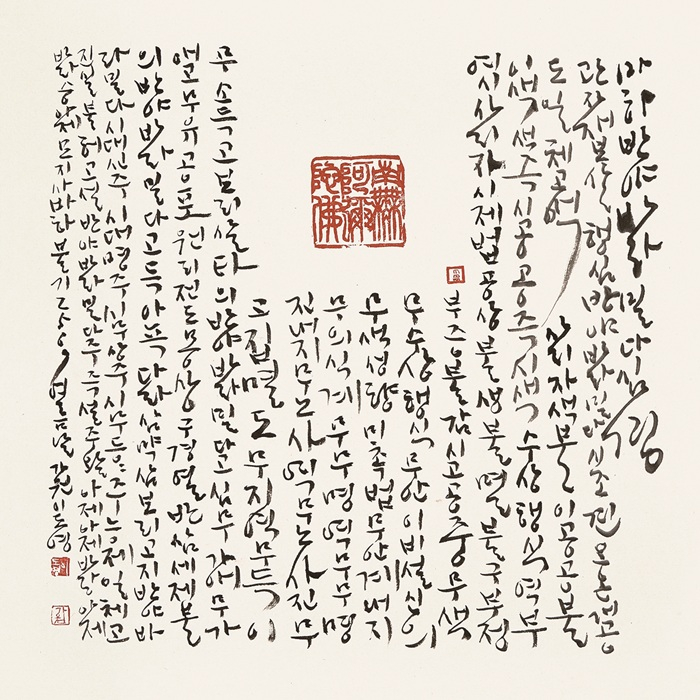 마하반야바라밀다심경
관자재보살 행심반야바라밀다시 조견오온개공
도일체고액 사리자 색불이공 공불
이색 색즉시공 공즉시색 수상행식 역부
역시 사리자 시제법공상 불생불멸 불구부정
부증불감 시고공중무색
무수상행식 무안이비설신의
무색성향미촉법 무안계 내지
무의식계 무무명 역무무명
진 내지 무노사 역무노사진 무
고집멸도 무지역무득 이
南無阿彌陀佛
무소득고 보리살타 의반야바라밀다고 심무가애 무가
애고 무유공포 원리전도몽상 구경열반 삼세제불
의반야바라밀다고 득아뇩다라삼먁삼보리 고지반야바
라밀다 시대신주 시대명주 시무상주 시무등등주 능제일체고
진실불허 고설반야바라밀다주 즉설주왈 아제아제 바라아제
바라승아제 모지사바하 불기 여름날